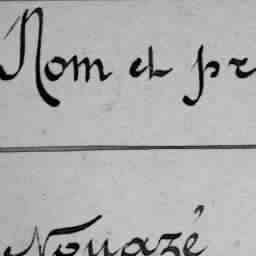 Nom et pr
Nouazé